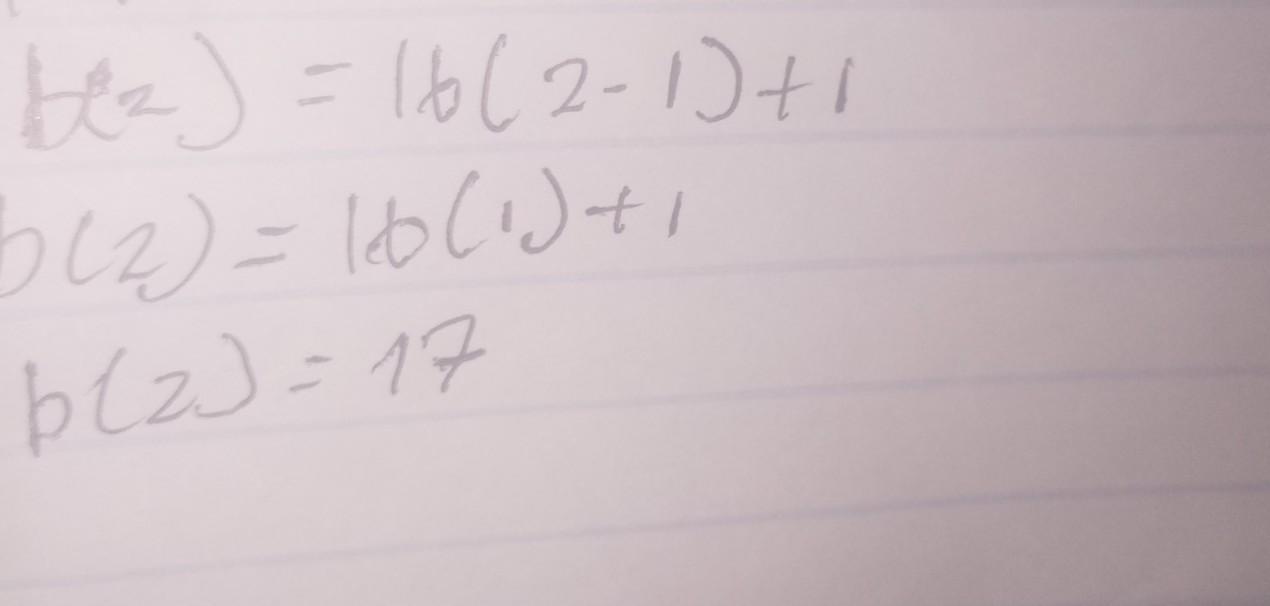 b(2) = 16(2-1)+1
b(2) = 16(1)+1
b(2) = 17